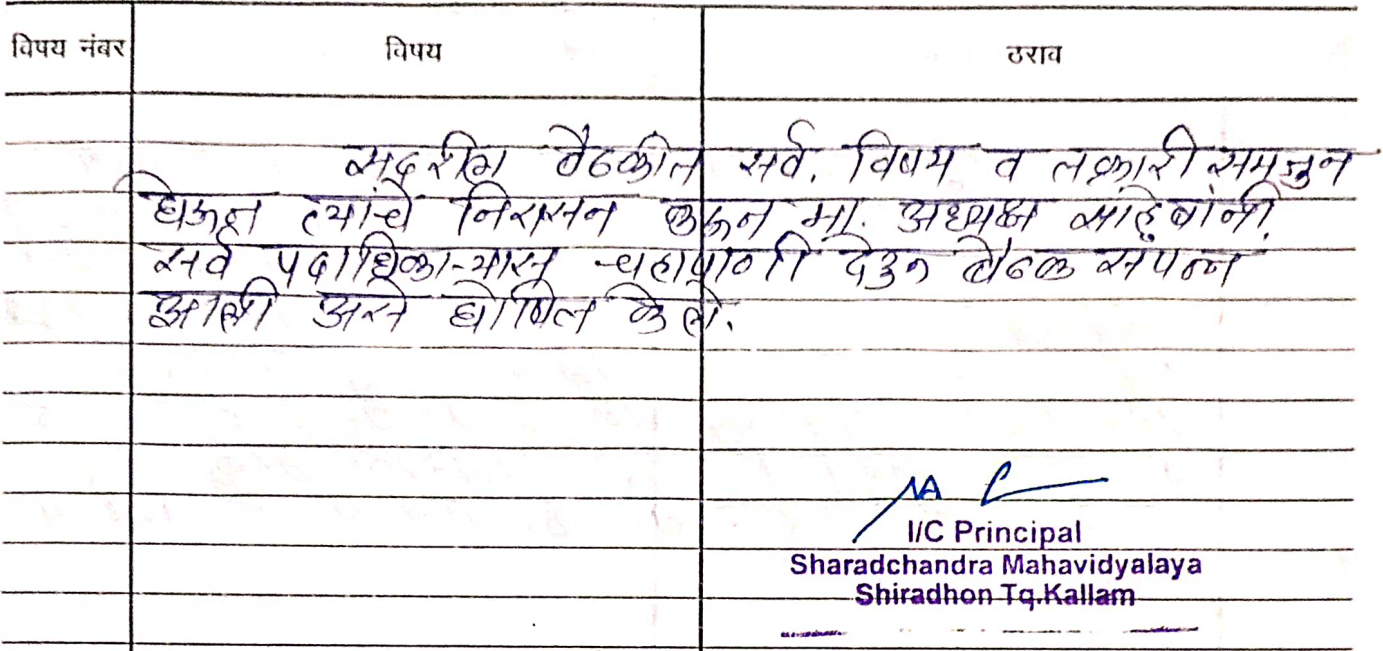 विषय नंबर विषय ठराव
सदरील बैठकीत सर्व. विषय व तक्रारी समजुन
घेऊन त्यांचे निरासन करून मा. अध्यक्ष साहेबांनी
सर्व पदाधिकाऱ्यास चहापाणी देउन बैठक संपन्न
झाली असे घोषित केले.
I/C Principal
Sharadchandra Mahavidyalaya
Shiradhon Tq.Kallam